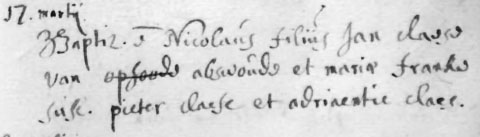 17. martij
Baptiz. e Nicolaus filius Jan claese
van opsoode abswoude et mariæ franke
susc. pieter claese et adriaentie claes.